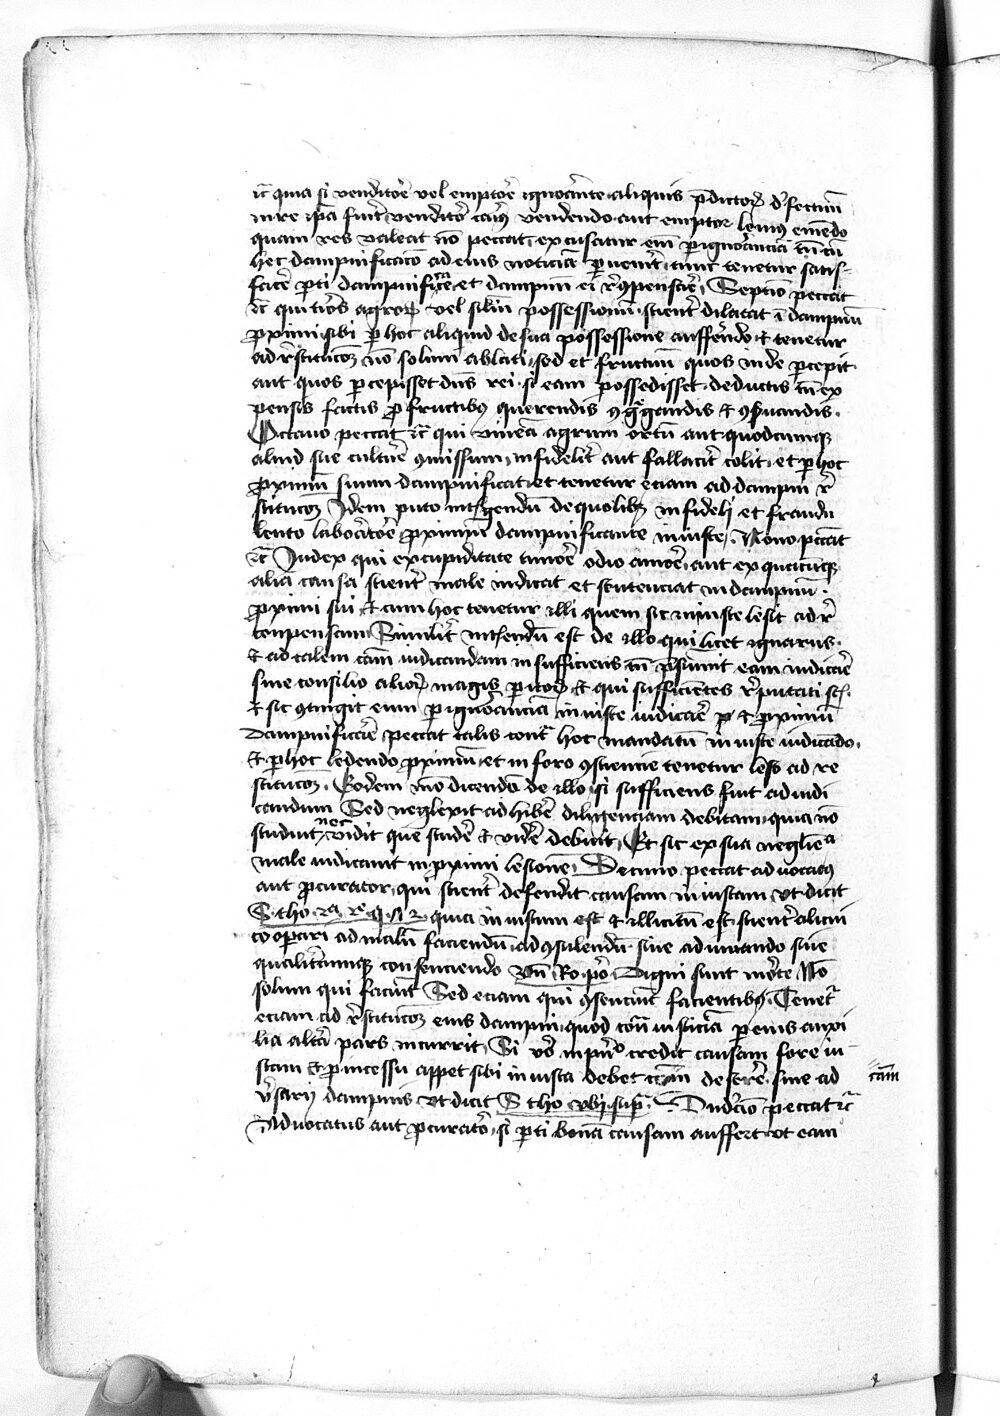 etc quia si venditore vel emptore ignorante aliquis predictorum defectuum
in re ipsa fuerit venditor carius vendendo aut emptor levius emendo
quam res valeat non peccat excusatur enim per ignoranciam tamen cum
hec dampnificatio ad eius noticiam pervenerit tunc tenetur satis-
facere parti dampnificate et dampnum ei recompensare Septimo peccat
etc qui terminos agrorum vel similium possessionum scienter dilatat in dampnum
proximi sibi per hoc aliquid de sua possessione aufferendo et tenetur
ad restitucionem non solum ablati sed et fructuum quos inde percepit
aut quos percepisset dominus rei si eam possedisset deductis tamen ex
pensis factis pro fructibus querendis congregandis et conservandis
Octavo peccat etc qui vineam agrum ortum aut quodcumque
aliud sue culture commissum infideliter aut fallaciter colit et per hoc
proximum suum dampnificat et tenetur eciam ad dampni re
stitucionem Idem puto intelligendum de quolibet infideli et fraudu
lento laboratore proximum dampnificante iniuste Nono peccat
etc Iudex qui ex cupiditate timore odio amore aut ex quacumque
alia causa scienter male iudicat et sentenciat in dampnum
proximi sui et cum hoc tenetur illi quem sic iniuste lesit ad re
conpensam Similiter intelligendum est de illo qui licet ignarus
et ad talem causam iudicandam insufficiens tamen presumit eam iudicare
sine consilio aliorum magis peritorum et qui sufficientes reputati
et sic contingit eum per ignoranciam iniuste iudicare et proximum
dampnificare peccat talis contra hoc mandatum iniuste iudicando
et per hoc ledendo proximum et in foro consciencie tenetur leso ad re
stitucionem Eodem modo dicendum de illo si sufficiens fuit ad iudi
candum Sed neglexit adhibere diligenciam debitam quia non
studuit nec vidit que studere et videre debuit Et sic ex sua negligencia
male iudicavit in proximi lesionem Decimo peccat advocatus
aut procurator qui scienter defendit causam iniustam ut dicit
S tho 2a 2e q 71 quia iniustum est et illicitum est scienter alicui
cooperari ad malum faciendum ad consulendum sive adiuvando sive
qualitercumque consenciendo Unde Ro primo Digni sunt morte Non
solum qui faciunt Sed eciam qui consenciunt facientibus Tenetur
eciam ad restitucionem eius dampni quod contra iusticiam per eius auxi
lia altera pars incurrit Si vero in principio credit causam fore iu-
stam et in processu apparet sibi iniusta debet causam deserere sine ad
versarii dampnis ut dicit S tho ubi supra Undecimo peccat etc
Advocatus aut procurator si parti bonam causam auffert ut eam
causam